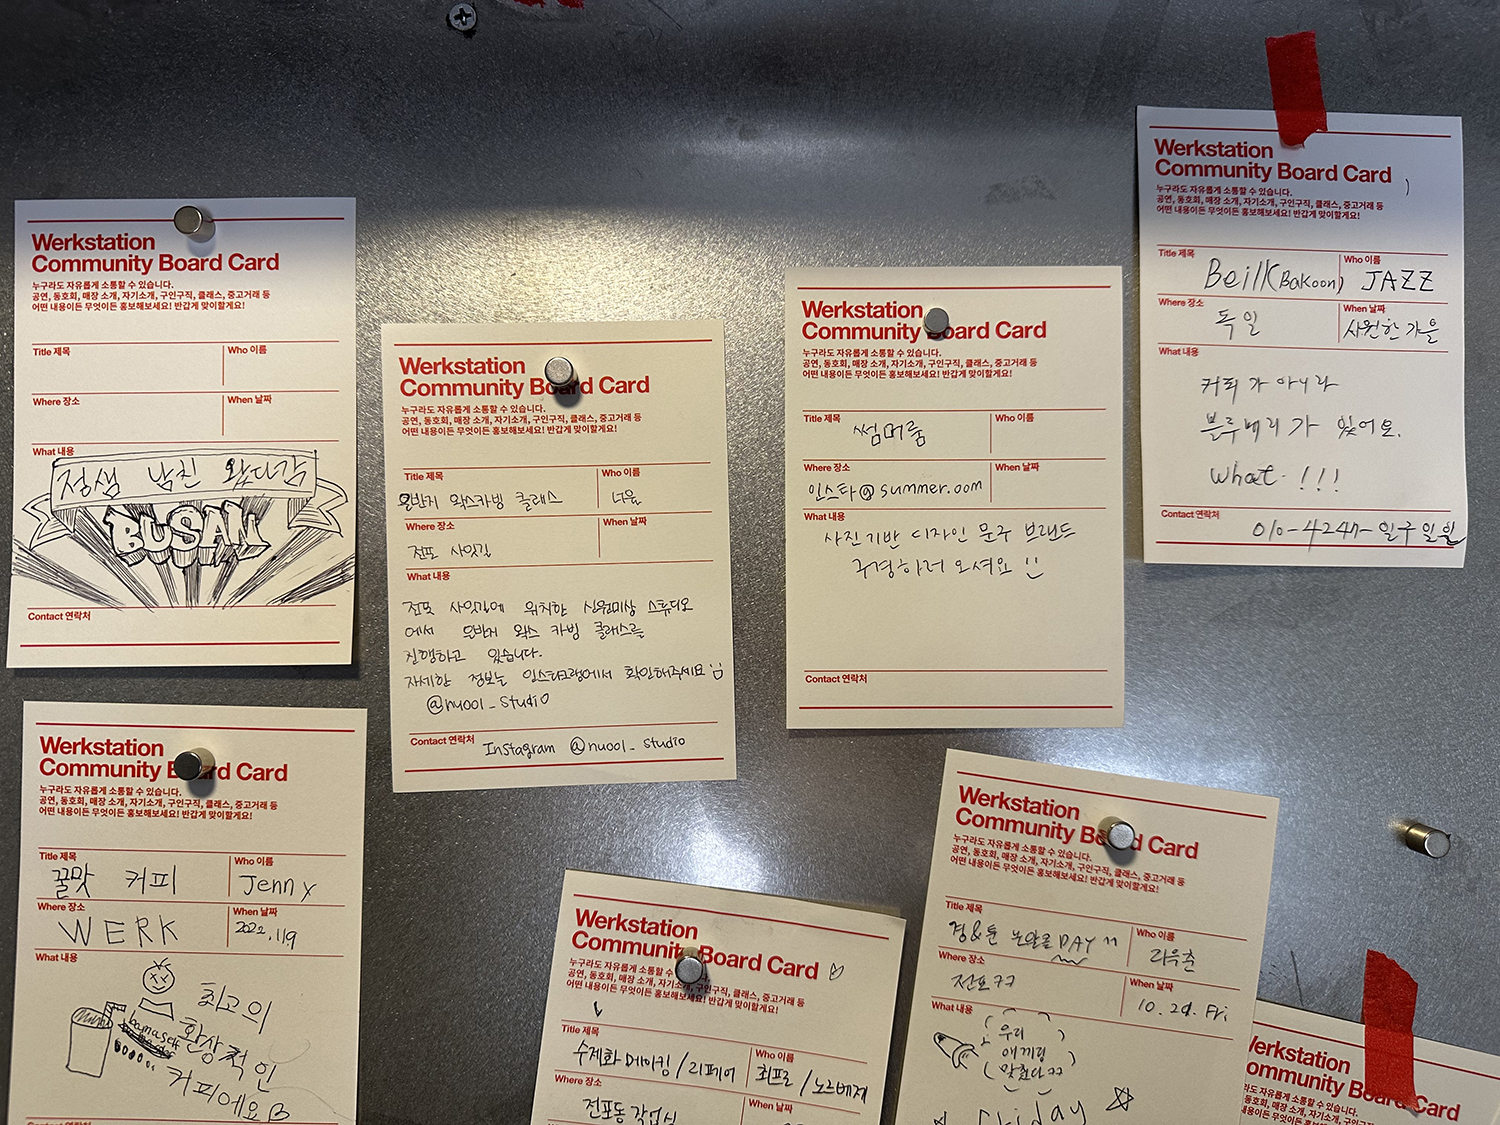 Werkstation
Community Board Card
누구라도 자유롭게 소통할 수 있습니다.
공연, 동호회, 매장 소개, 자기소개, 구인구직, 클래스, 중고거래 등
어떤 내용이든 무엇이든 홍보해보세요! 반갑게 맞이할게요!
Title 제목
Who 이름
Where 장소
When 날짜
What 내용
BUSAN
Contact 연락처
Werkstation
Community Board Card
누구라도 자유롭게 소통할 수 있습니다.
공연, 동호회, 매장 소개, 자기소개, 구인구직, 클래스, 중고거래 등
어떤 내용이든 무엇이든 홍보해보세요! 반갑게 맞이할게요!
Title 제목
은반지 왁스카빙 클래스
Who 이름
너울
Where 장소
전포 사잇길
When 날짜
What 내용
전포 사잇길에 위치한 신원미상 스튜디오
에서 은반지 왁스 카빙 클래스를
진행하고 있습니다.
자세한 정보는 인스타그램에서 확인해주세요
@nuool_studio
Contact 연락처
Instagram @nuool_studio
Werkstation
Community Board Card
누구라도 자유롭게 소통할 수 있습니다.
공연, 동호회, 매장 소개, 자기소개, 구인구직, 클래스, 중고거래 등
어떤 내용이든 무엇이든 홍보해보세요! 반갑게 맞이할게요!
Title 제목
썸머룸
Who 이름
Where 장소
인스타@summer.oom
When 날짜
What 내용
사진기반 디자인 문구 브랜드
구경하러 오셔요
Contact 연락처
Werkstation
Community Board Card
누구라도 자유롭게 소통할 수 있습니다.
공연, 동호회, 매장 소개, 자기소개, 구인구직, 클래스, 중고거래 등
어떤 내용이든 무엇이든 홍보해보세요! 반갑게 맞이할게요!
Title 제목
Beill(Bakoon)
Who 이름
JAZZ
Where 장소
독일
When 날짜
시원한 가을
What 내용
커피가 아니라
블루베리가 있어요.
What !!!
Contact 연락처
010-4247-일구일일
Werkstation
Community Board Card
누구라도 자유롭게 소통할 수 있습니다.
공연, 동호회, 매장 소개, 자기소개, 구인구직, 클래스, 중고거래 등
어떤 내용이든 무엇이든 홍보해보세요! 반갑게 맞이할게요!
Title 제목
꿀맛 커피
Who 이름
Jenny
Where 장소
WERK
When 날짜
2022.119
What 내용
최고의
환상적인
커피에요
Werkstation
Community Board Card
누구라도 자유롭게 소통할 수 있습니다.
공연, 동호회, 매장 소개, 자기소개, 구인구직, 클래스, 중고거래 등
어떤 내용이든 무엇이든 홍보해보세요! 반갑게 맞이할게요!
Title 제목
수제화 메이킹/리페어
Who 이름
최프로/노르베제
Where 장소
전포동 작업실
When 날짜
Werkstation
Community Board Card
누구라도 자유롭게 소통할 수 있습니다.
공연, 동호회, 매장 소개, 자기소개, 구인구직, 클래스, 중고거래 등
어떤 내용이든 무엇이든 홍보해보세요! 반갑게 맞이할게요!
Title 제목
DAY
Who 이름
Where 장소
전포ㅋㅋ
When 날짜
10.29. Fri
What 내용
우리
Friday
Werkstation
Community Board Card